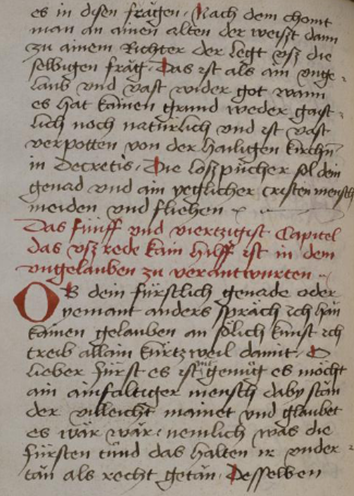 es in disen frägen. Nach dem chomt
man an ainen alten der weißt dann
zu ainem Richter der legt vß die
selbigen fräg. Das ist als ain unge
laub vnd vast wider got wann
es hat kainen grund weder gaist
lich noch natürlich vnd ist vast
verpotten von der hailigen kirchen
in Decretis. Die loßpücher sol dein
genad vnd ain yeglicher cristen mensch
meiden vnd fliehen
Das fünff vnd viertzigist Capitel
das vß rede kain hilff ist in dem
vngelauben zu verantwurten
Ob dein fürstlich genade oder
yemant anders spräch ich hän
kainen gelauben an sölich kunst ich
treib allain kurtzweil damit. O
lieber fürst es ist nit genug es möcht
ain ainfältiger mensch daby stän
der villeicht mainet vnd glaubet
es wär wär. nemlich was die
fürsten tünd das halten ir vnder
tän als recht getän. Desselben